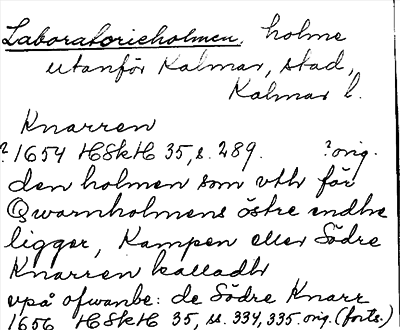 Laboratorieholmen, holme
utanför Kalmar, stad,
Kalmar l.
Knarren
? 1654 HSkH 35, s. 289. ? orig.
den holmen som vthr för
Qwarnholmens östre endhe
ligger, Kampen eller Södre
Knarren kalladh
vpå ofwanbe: de Södre Knarr
1656 HSkH 35, ss. 334, 335. orig. (forts.)